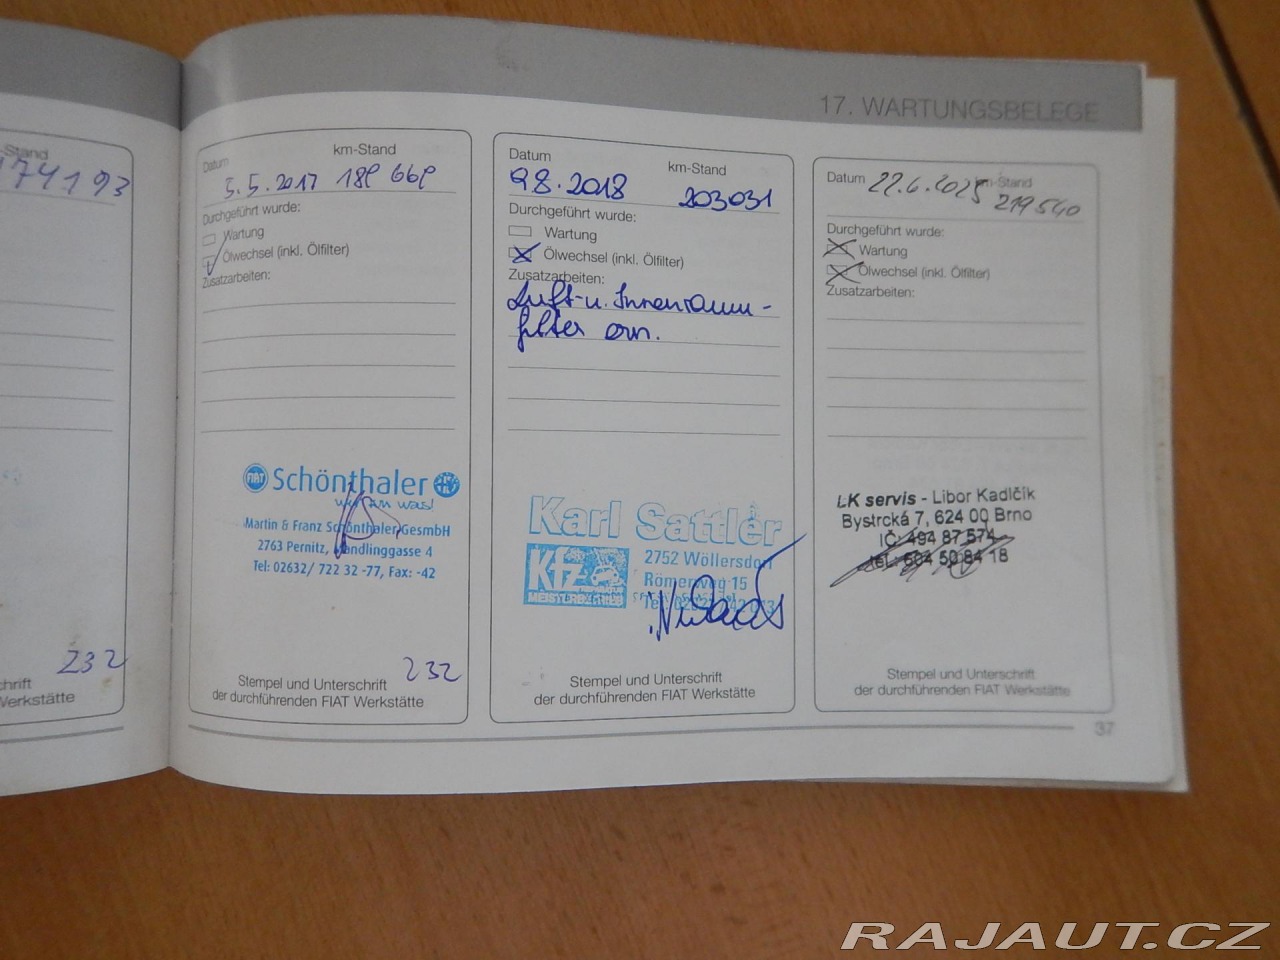 17. WARTUNGSBELEGE
-Stand
174193
232
hrift
Werkstätte
Datum
km-Stand
5.5.2017 189 669
Durchgeführt wurde:
Wartung
Ölwechsel (inkl. Ölfilter)
Zusatzarbeiten:
FIAT Schönthaler
Martin & Franz Schönthaler GesmbH
2763 Pernitz, Handlinggasse 4
Tel: 02632/ 722 32 -77, Fax: -42
232
Stempel und Unterschrift
der durchführenden FIAT Werkstätte
Datum
km-Stand
9.8.2018 203031
Durchgeführt wurde:
Wartung
Ölwechsel (inkl. Ölfilter)
Zusatzarbeiten:
Luft-u. Innenraum-
filter ern.
Karl Sattler
Kfz
MEISTERBETRIEB
2752 Wöllersdorf
Römerweg 15
Stempel und Unterschrift
der durchführenden FIAT Werkstätte
Datum 22.6.2025 km-Stand
219540
Durchgeführt wurde:
Wartung
Ölwechsel (inkl. Ölfilter)
Zusatzarbeiten:
LK servis - Libor Kadlčík
Bystrcká 7, 624 00 Brno
IČ: 494 87 574
tel.: 604 50 84 18
Stempel und Unterschrift
der durchführenden FIAT Werkstätte
37
RAJAUT.CZ